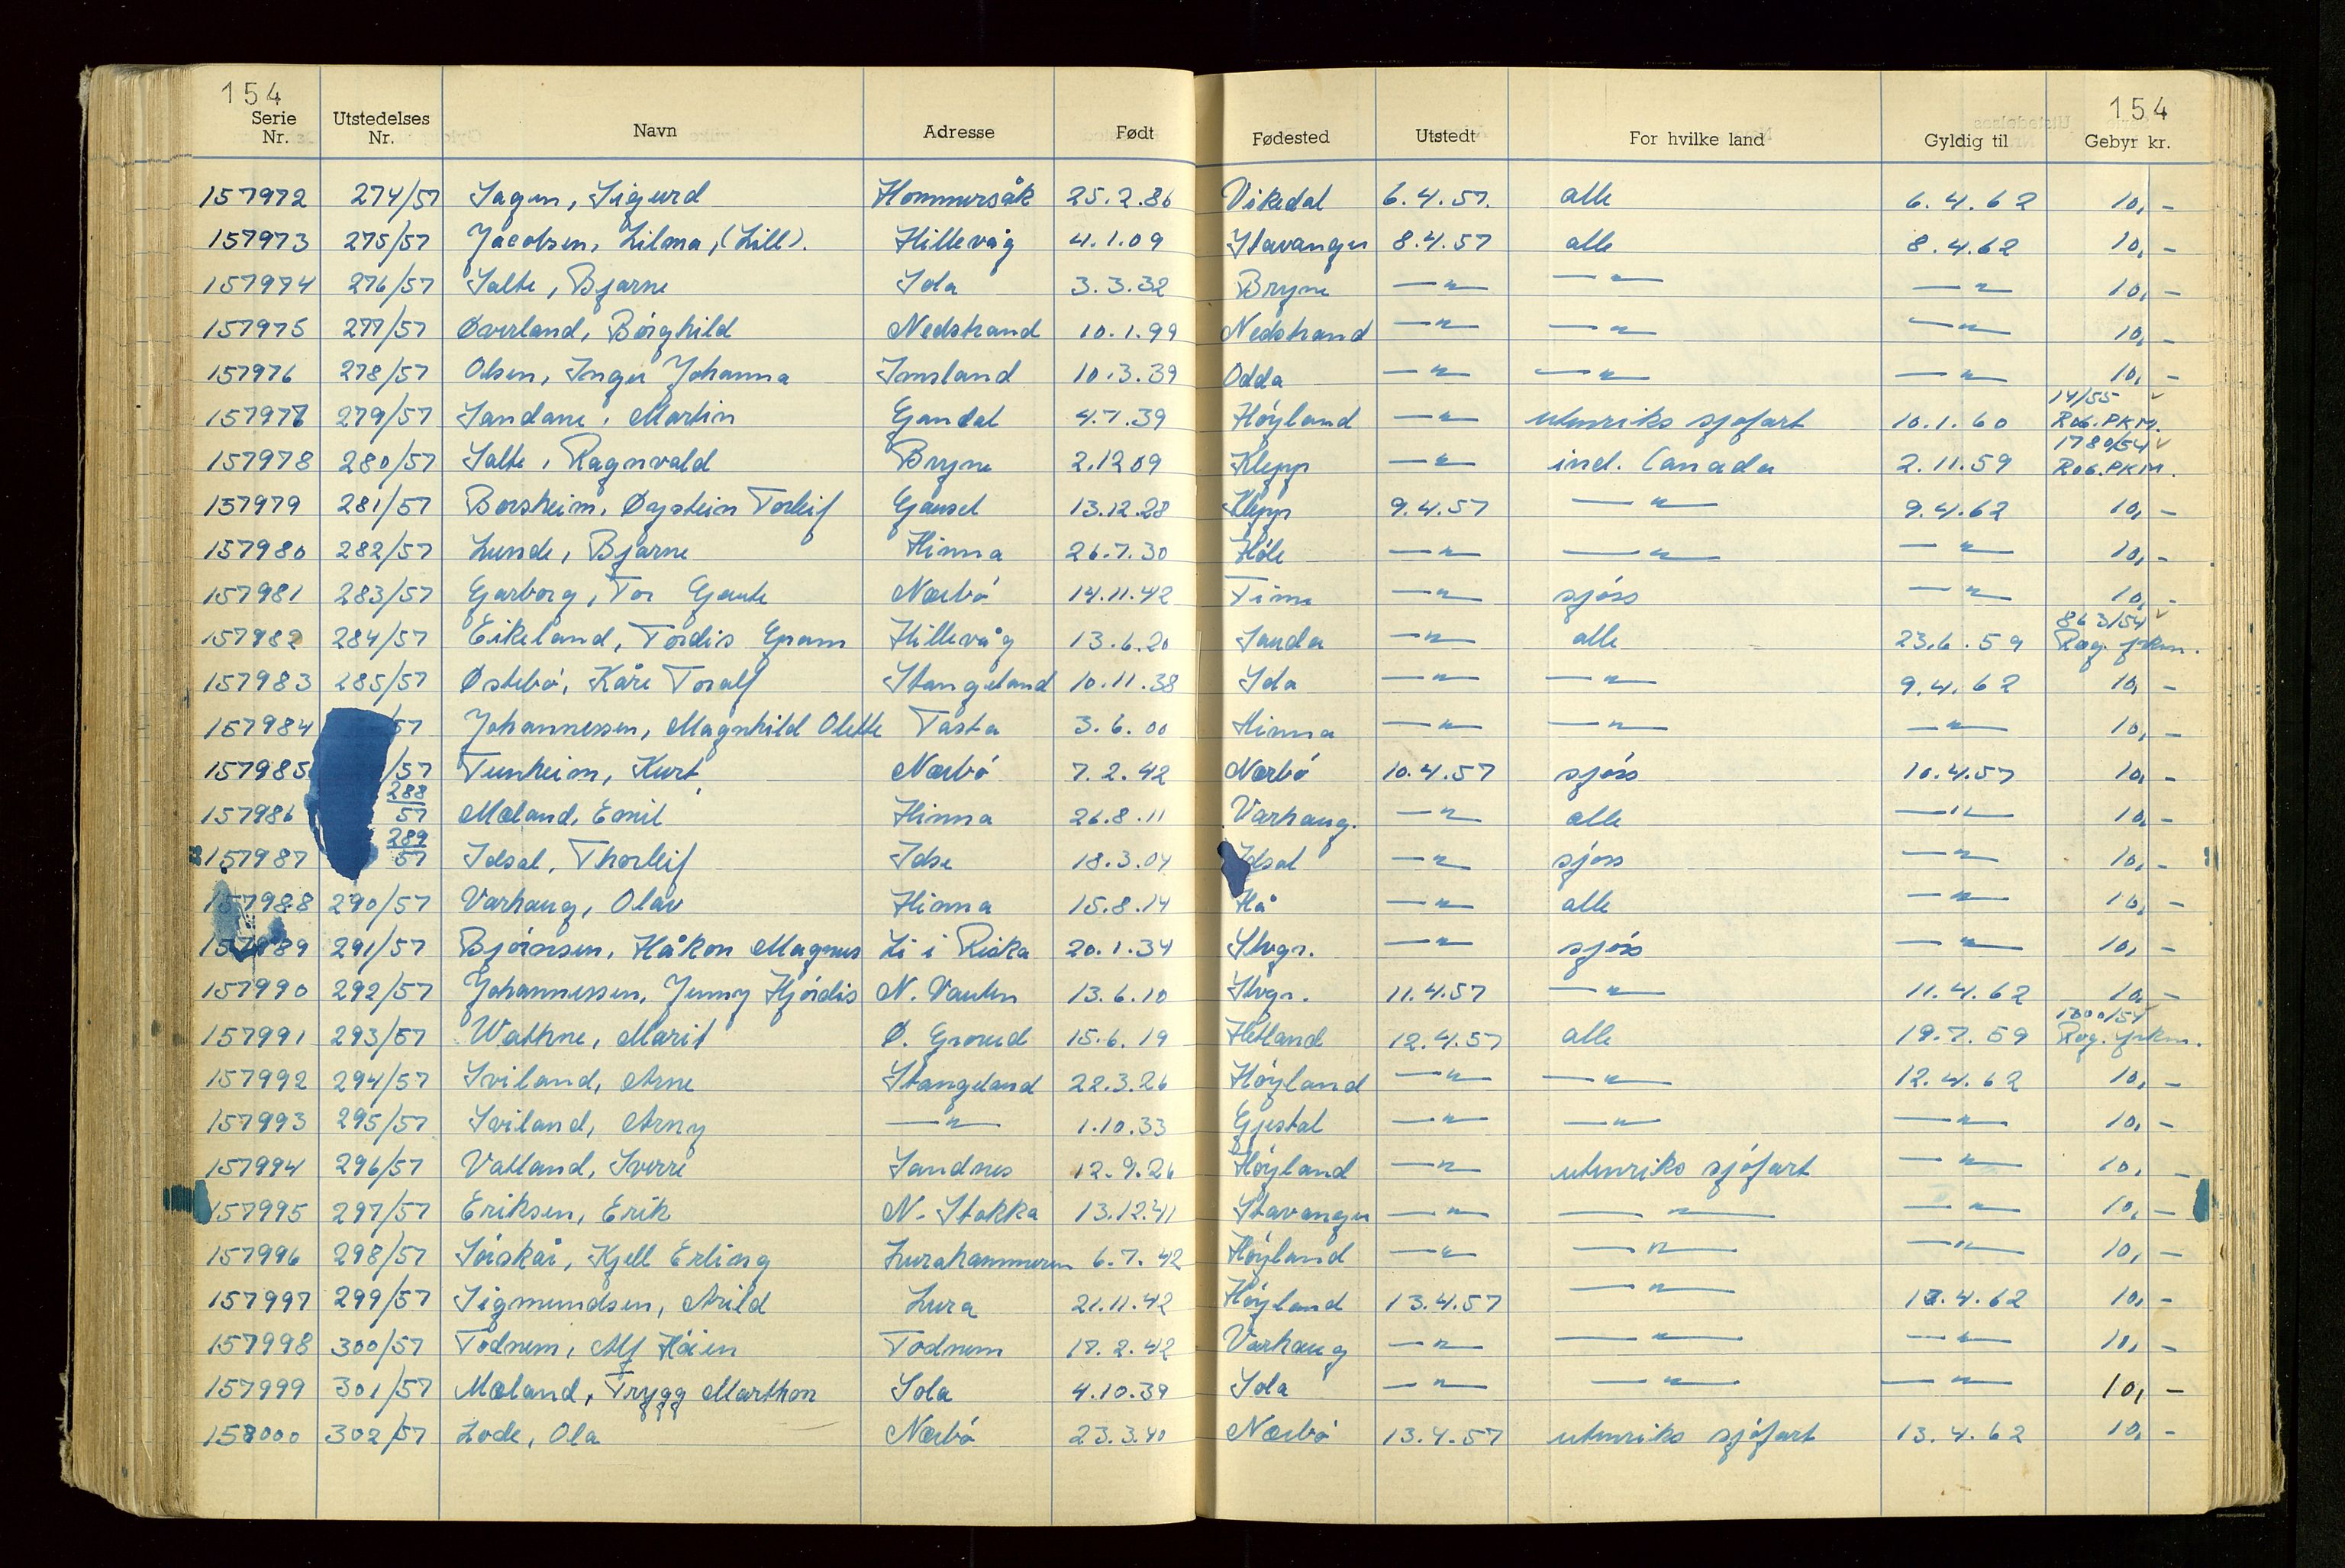 154
154
Serie Nr. Utstedelses Nr. Navn Adresse Født Fødested Utstedt For hvilke land Gyldig til Gebyr kr.
157972 274/57 Sagen, Sigurd Hommersåk 25.2.86 Vikedal 6.4.57. alle 6.4.62 10,-
157973 275/57 Jacobsen, Lilma, (Lill). Hillevåg 4.1.09 Stavanger 8.4.57 alle 8.4.62 10,-
157974 276/57 Salte, Bjarne Sola 3.3.32 Bryne —"— —"— —"— 10,-
157975 277/57 Øverland, Borghild Nedstrand 10.1.99 Nedstrand —"— —"— —"— 10,-
157976 278/57 Olsen, Inger Johanna Imsland 10.3.39 Odda —"— —"— —"— 10,-
157977 279/57 Sandane, Martin Gandal 4.7.39 Høyland —"— utenriks sjøfart 10.1.60 14/55 Rog.PKM.
157978 280/57 Salte, Ragnvald Bryne 2.12 09 Klepp —"— incl. Canada 2.11.59 1780/54 Rog.PKM.
157979 281/57 Borsheim, Øystein Torleif Gausel 13.12.28 Klepp 9.4.57 —"— 9.4.62 10,-
157980 282/57 Lunde, Bjarne Hinna 26.7.30 Høle —"— —"— —"— 10,-
157981 283/57 Garborg, Tor Gaute Nærbø 14.11.42 Time —"— sjøss —"— 10,-
157982 284/57 Eikeland, Tordis Gram Hillevåg 13.6.20 Sauda —"— alle 23.6.59 863/54 Rog. pkm.
157983 285/57 Østebø, Kåre Toralf Stangeland 10.11.38 Sola —"— —"— 9.4.62 10,-
157984 57 Johannessen, Magnhild Olette Tasta 3.6.00 Hinna —"— —"— —"— 10,-
157985 /57 Tunheim, Kurt Nærbø 7.2.42 Nærbø 10.4.57 sjøss 10.4.57 10,-
157986 288/57 Mæland, Emil Hinna 26.8.11 Varhaug. —"— alle —"— 10,-
157987 289/57 Idsal, Thorleif Idse 18.3.04 Idsal —"— sjøss —"— 10,-
157988 290/57 Varhaug, Olav Hinna 15.8.14 Hå —"— alle —"— 10,-
157989 291/57 Bjørnsen, Håkon Magnus Li i Riska 20.1.34 Stvgr. —"— sjøss —"— 10,-
157990 292/57 Johannessen, Jenny Hjørdis N. Vaulen 13.6.10 Stvgr. 11.4.57 —"— 11.4.62 10,-
157991 293/57 Wathne, Marit Ø. Groud 15.6.19 Hetland 12.4.57 alle 19.7.59 Rog. pkm.
157992 294/57 Sviland, Arne Stangeland 22.3.26 Høyland —"— —"— 12.4.62 10,-
157993 295/57 Sviland, Arny —"— 1.10.33 Gjestal —"— —"— —"— 10,-
157994 296/57 Vatland, Sverre Sandnes 12.9.26 Høyland —"— utenriks sjøfart —"— 10,-
157995 297/57 Eriksen, Erik N. Stokka 13.12.41 Stavanger —"— —"— —"— 10,-
157996 298/57 Sørskår, Kjell Erling Lurahammeren 6.7.42 Høyland —"— —"— —"— 10,-
157997 299/57 Sigmundsen, Arild Lura 21.11.42 Høyland 13.4.57 —"— 13.4.62 10,-
157998 300/57 Todnem, Alf Høien Todnem 17.2.42 Varhaug —"— —"— —"— 10,-
157999 301/57 Mæland, Trygg Marthon Sola 4.10.39 Sola —"— —"— —"— 10,-
158000 302/57 Lode, Ola Nærbø 23.3.40 Nærbø 13.4.57 utenriks sjøfart 13.4.62 10,-